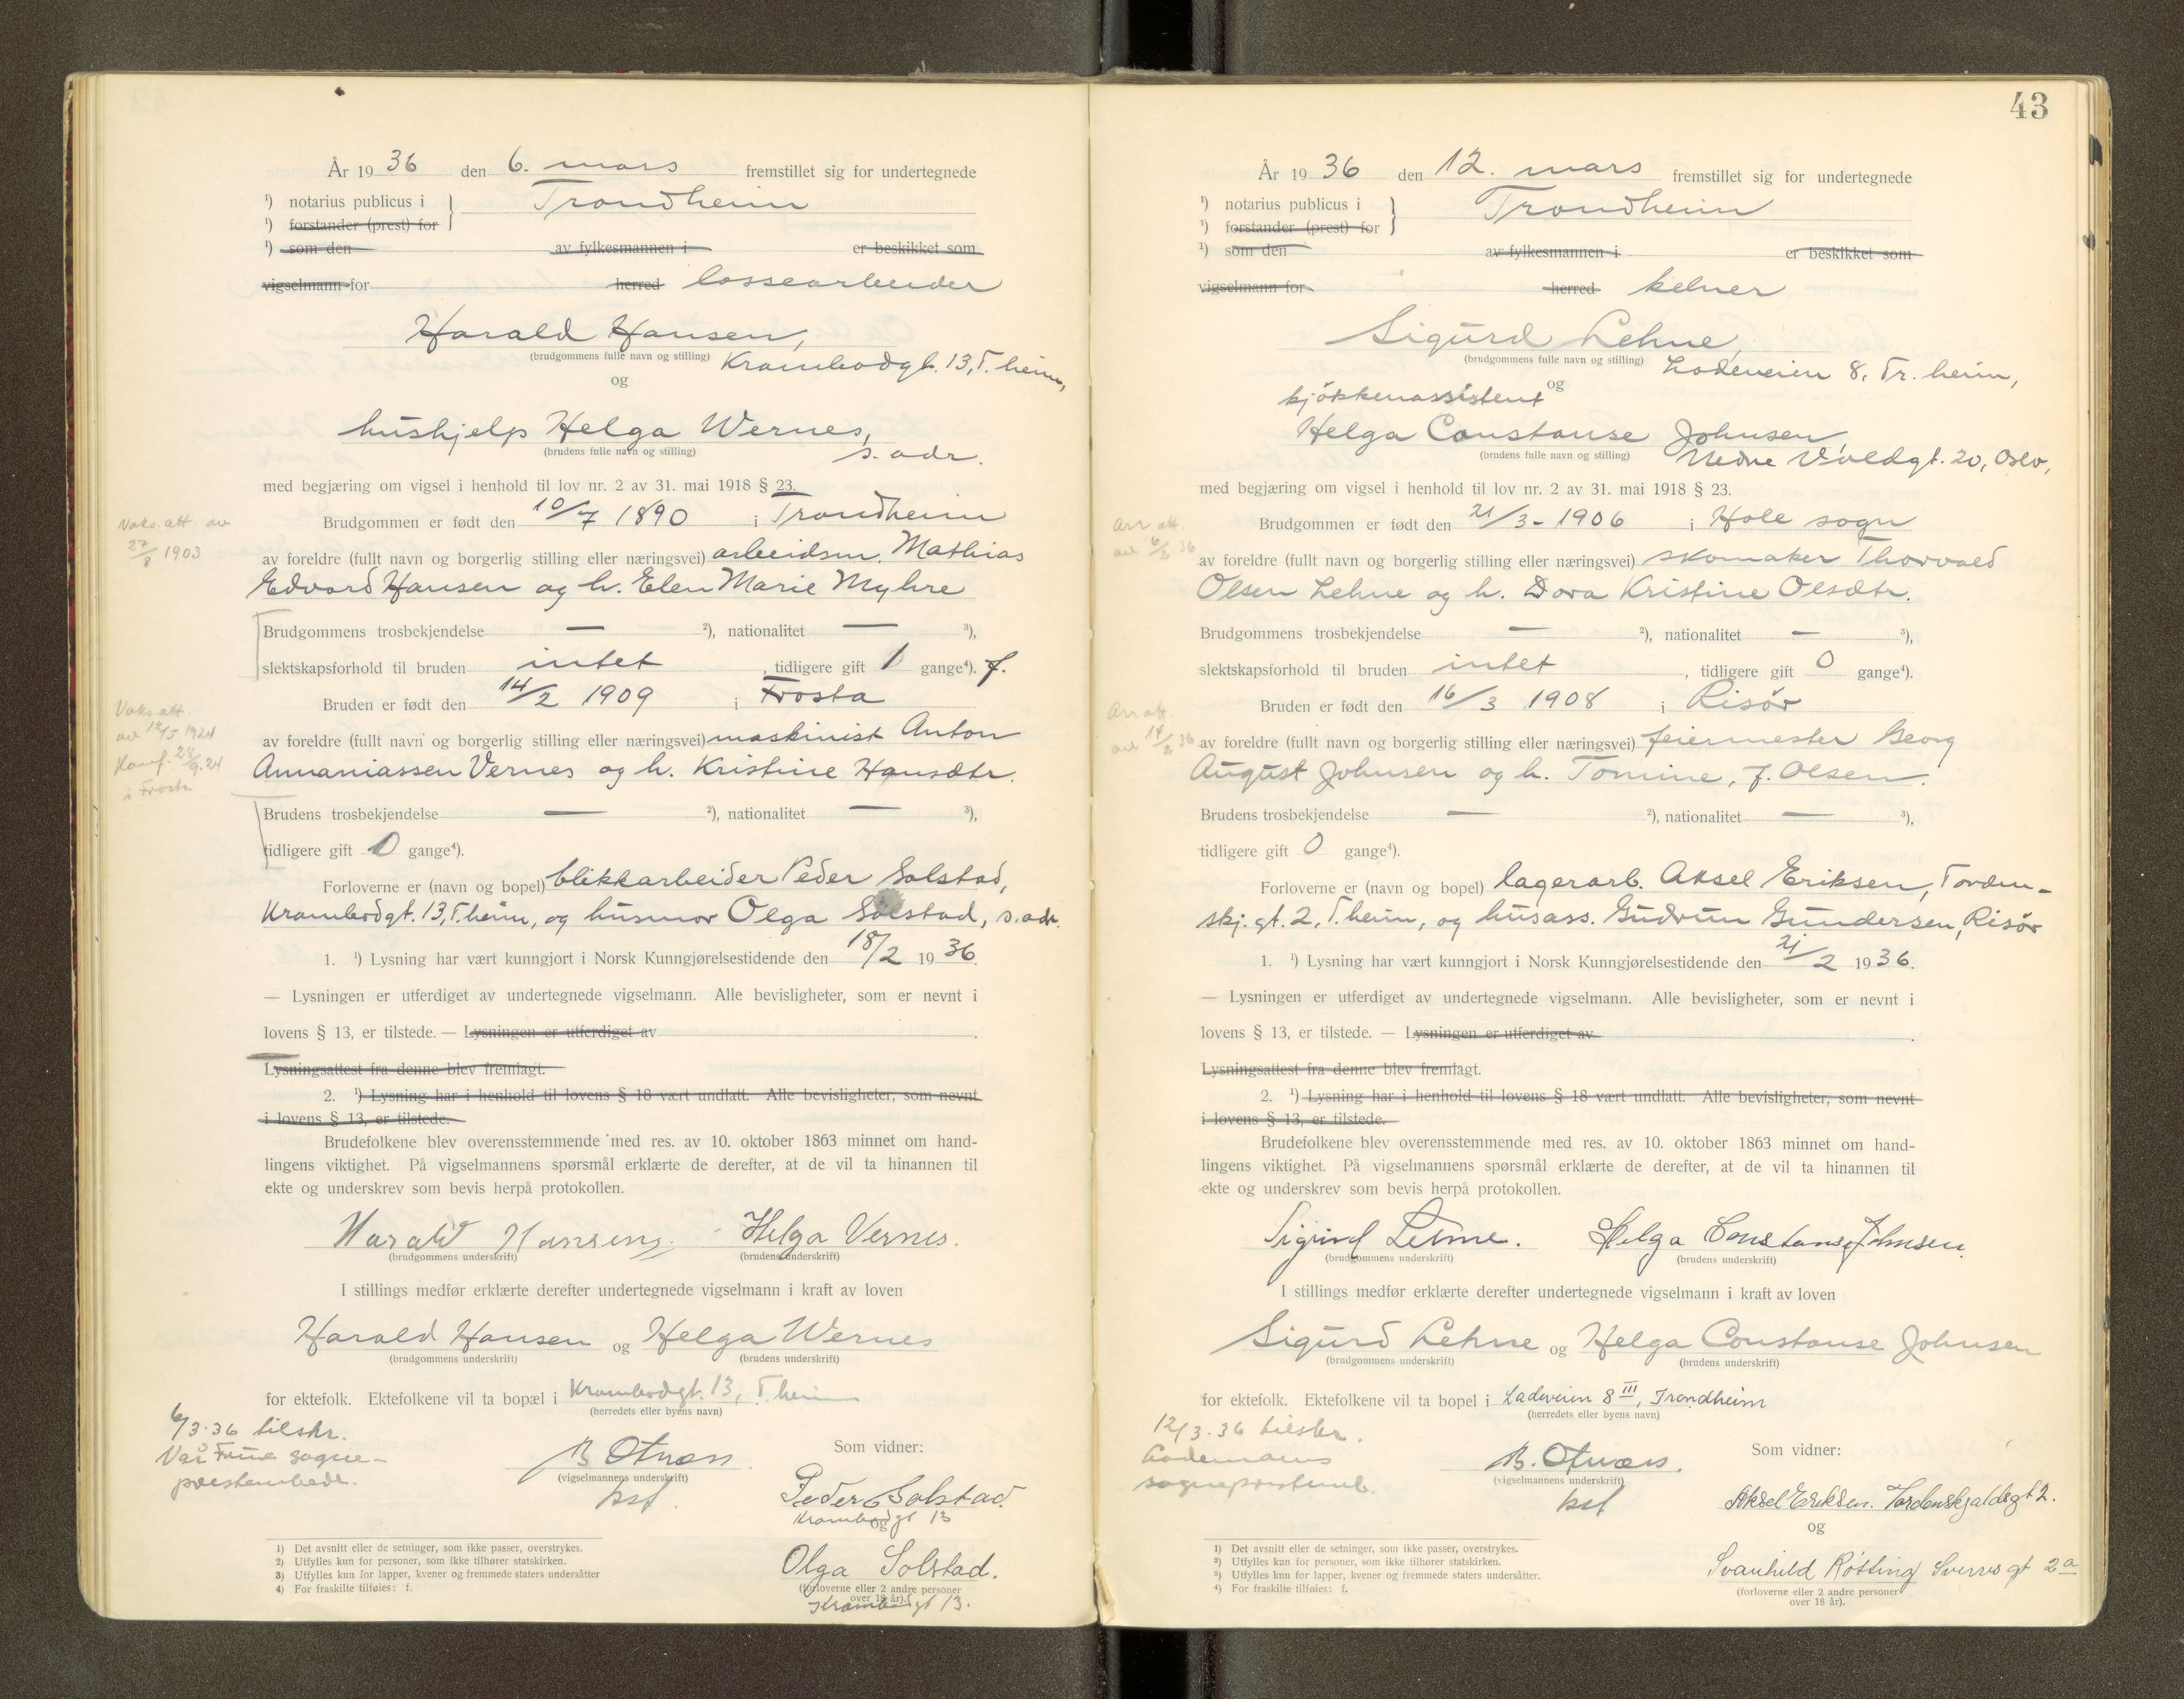 År 1936 den 6. mars fremstillet sig for undertegnede
¹) notarius publicus i } Trondheim
¹) forstander (prest) for
¹) som den av fylkesmannen i er beskikket som
vigselmann for herred lossearbeider
Harald Hansen,
(brudgommens fulle navn og stilling) Krambodgt. 13, T.heim,
og
hushjelp Helga Wernes,
(brudens fulle navn og stilling) s. adr.
med begjæring om vigsel i henhold til lov nr. 2 av 31. mai 1918 § 23.
Brudgommen er født den 10/7 1890 i Trondheim
Vaks.att. av
27/8 1903
av foreldre (fullt navn og borgerlig stilling eller næringsvei) arbeidsm. Mathias
Edvard Hansen og h. Elen Marie Myhre
Brudgommens trosbekjendelse — ²), nationalitet — ³),
slektskapsforhold til bruden intet, tidligere gift 1 gange⁴). f.
Bruden er født den 14/2 1909 i Frosta
Vaks att.
av 12/5 1924
Konf. 28/9.24
i Frosta
av foreldre (fullt navn og borgerlig stilling eller næringsvei) maskinist Anton
Annaniassen Vernes og h. Kristine Hansdtr.
Brudens trosbekjendelse — ²), nationalitet — ³),
tidligere gift 0 gange⁴).
Forloverne er (navn og bopel) blikkarbeider Peder Solstad,
Krambodgt. 13, T.heim, og husmor Olga Solstad, s. adr.
1. ¹) Lysning har vært kunngjort i Norsk Kunngjørelsestidende den 18/2 1936.
— Lysningen er utferdiget av undertegnede vigselmann. Alle bevisligheter, som er nevnt i
lovens § 13, er tilstede. — Lysningen er utferdiget av
Lysningsattest fra denne blev fremlagt.
2. ¹) Lysning har i henhold til lovens § 18 vært undlatt. Alle bevisligheter, som nevnt
i lovens § 13, er tilstede.
Brudefolkene blev overensstemmende med res. av 10. oktober 1863 minnet om hand-
lingens viktighet. På vigselmannens spørsmål erklærte de derefter, at de vil ta hinannen til
ekte og underskrev som bevis herpå protokollen.
Harald Hansen. Helga Vernes.
(brudgommens underskrift) (brudens underskrift)
I stillings medfør erklærte derefter undertegnede vigselmann i kraft av loven
Harald Hansen og Helga Wernes
(brudgommens underskrift) (brudens underskrift)
for ektefolk. Ektefolkene vil ta bopæl i Krambodgt. 13, T.heim
(herredets eller byens navn)
6/3.36 tilskr.
Vår Frue sogne-
prestembede.
B Otnæss
(vigselmannens underskrift)
Som vidner:
Peder Solstad.
Krambodgt 13
og
Olga Solstad.
(forloverne eller 2 andre personer
over 18 år).
Krambodgt 13.
1) Det avsnitt eller de setninger, som ikke passer, overstrykes.
2) Utfylles kun for personer, som ikke tilhører statskirken.
3) Utfylles kun for lapper, kvener og fremmede staters undersåtter
4) For fraskilte tilføies: f.
43
År 1936 den 12. mars fremstillet sig for undertegnede
¹) notarius publicus i } Trondheim
¹) forstander (prest) for
¹) som den av fylkesmannen i er beskikket som
vigselmann for herred kelner
Sigurd Lehne,
(brudgommens fulle navn og stilling) Ladeveien 8, Tr.heim,
og
kjøkkenassistent
Helga Constanse Johnsen,
(brudens fulle navn og stilling) Nedre Voldgt. 20, Oslo,
med begjæring om vigsel i henhold til lov nr. 2 av 31. mai 1918 § 23.
Brudgommen er født den 21/3 - 1906 i Hole sogn
av foreldre (fullt navn og borgerlig stilling eller næringsvei) skomaker Thorvald
Olsen Lehne og h. Dora Kristine Olsdtr.
Brudgommens trosbekjendelse — ²), nationalitet — ³),
slektskapsforhold til bruden intet, tidligere gift 0 gange⁴).
Bruden er født den 16/3 1908 i Risör
av foreldre (fullt navn og borgerlig stilling eller næringsvei) feiermester Georg
August Johnsen og h. Tomine, f. Olsen.
Brudens trosbekjendelse — ²), nationalitet — ³),
tidligere gift 0 gange⁴).
Forloverne er (navn og bopel) lagerarb. Aksel Eriksen, Torden-
skj. gt. 2, T.heim, og husass. Gudrun Gundersen, Risör
1. ¹) Lysning har vært kunngjort i Norsk Kunngjørelsestidende den 21/2 1936.
— Lysningen er utferdiget av undertegnede vigselmann. Alle bevisligheter, som er nevnt i
lovens § 13, er tilstede. — Lysningen er utferdiget av
Lysningsattest fra denne blev fremlagt.
2. ¹) Lysning har i henhold til lovens § 18 vært undlatt. Alle bevisligheter, som nevnt
i lovens § 13, er tilstede.
Brudefolkene blev overensstemmende med res. av 10. oktober 1863 minnet om hand-
lingens viktighet. På vigselmannens spørsmål erklærte de derefter, at de vil ta hinannen til
ekte og underskrev som bevis herpå protokollen.
Sigurd Lehne. Helga Constanse Johnsen.
(brudgommens underskrift) (brudens underskrift)
I stillings medfør erklærte derefter undertegnede vigselmann i kraft av loven
Sigurd Lehne og Helga Constanse Johnsen
(brudgommens underskrift) (brudens underskrift)
for ektefolk. Ektefolkene vil ta bopel i Ladeveien 8 III, Trondheim
(herredets eller byens navn)
12/3.36 tilskr.
Lademoens
sogneprestemb.
B. Otnæss.
(vigselmannens underskrift)
Som vidner:
Aksel Eriksen. Tordenskjoldsgt 2.
og
Svanhild Røtting Sverres gt 2a
(forloverne eller 2 andre personer
over 18 år).
¹) Det avsnitt eller de setninger, som ikke passer, overstrykes.
²) Utfylles kun for personer, som ikke tilhører statskirken.
³) Utfylles kun for lapper, kvener og fremmede staters undersåtter.
⁴) For fraskilte tilføies: f.